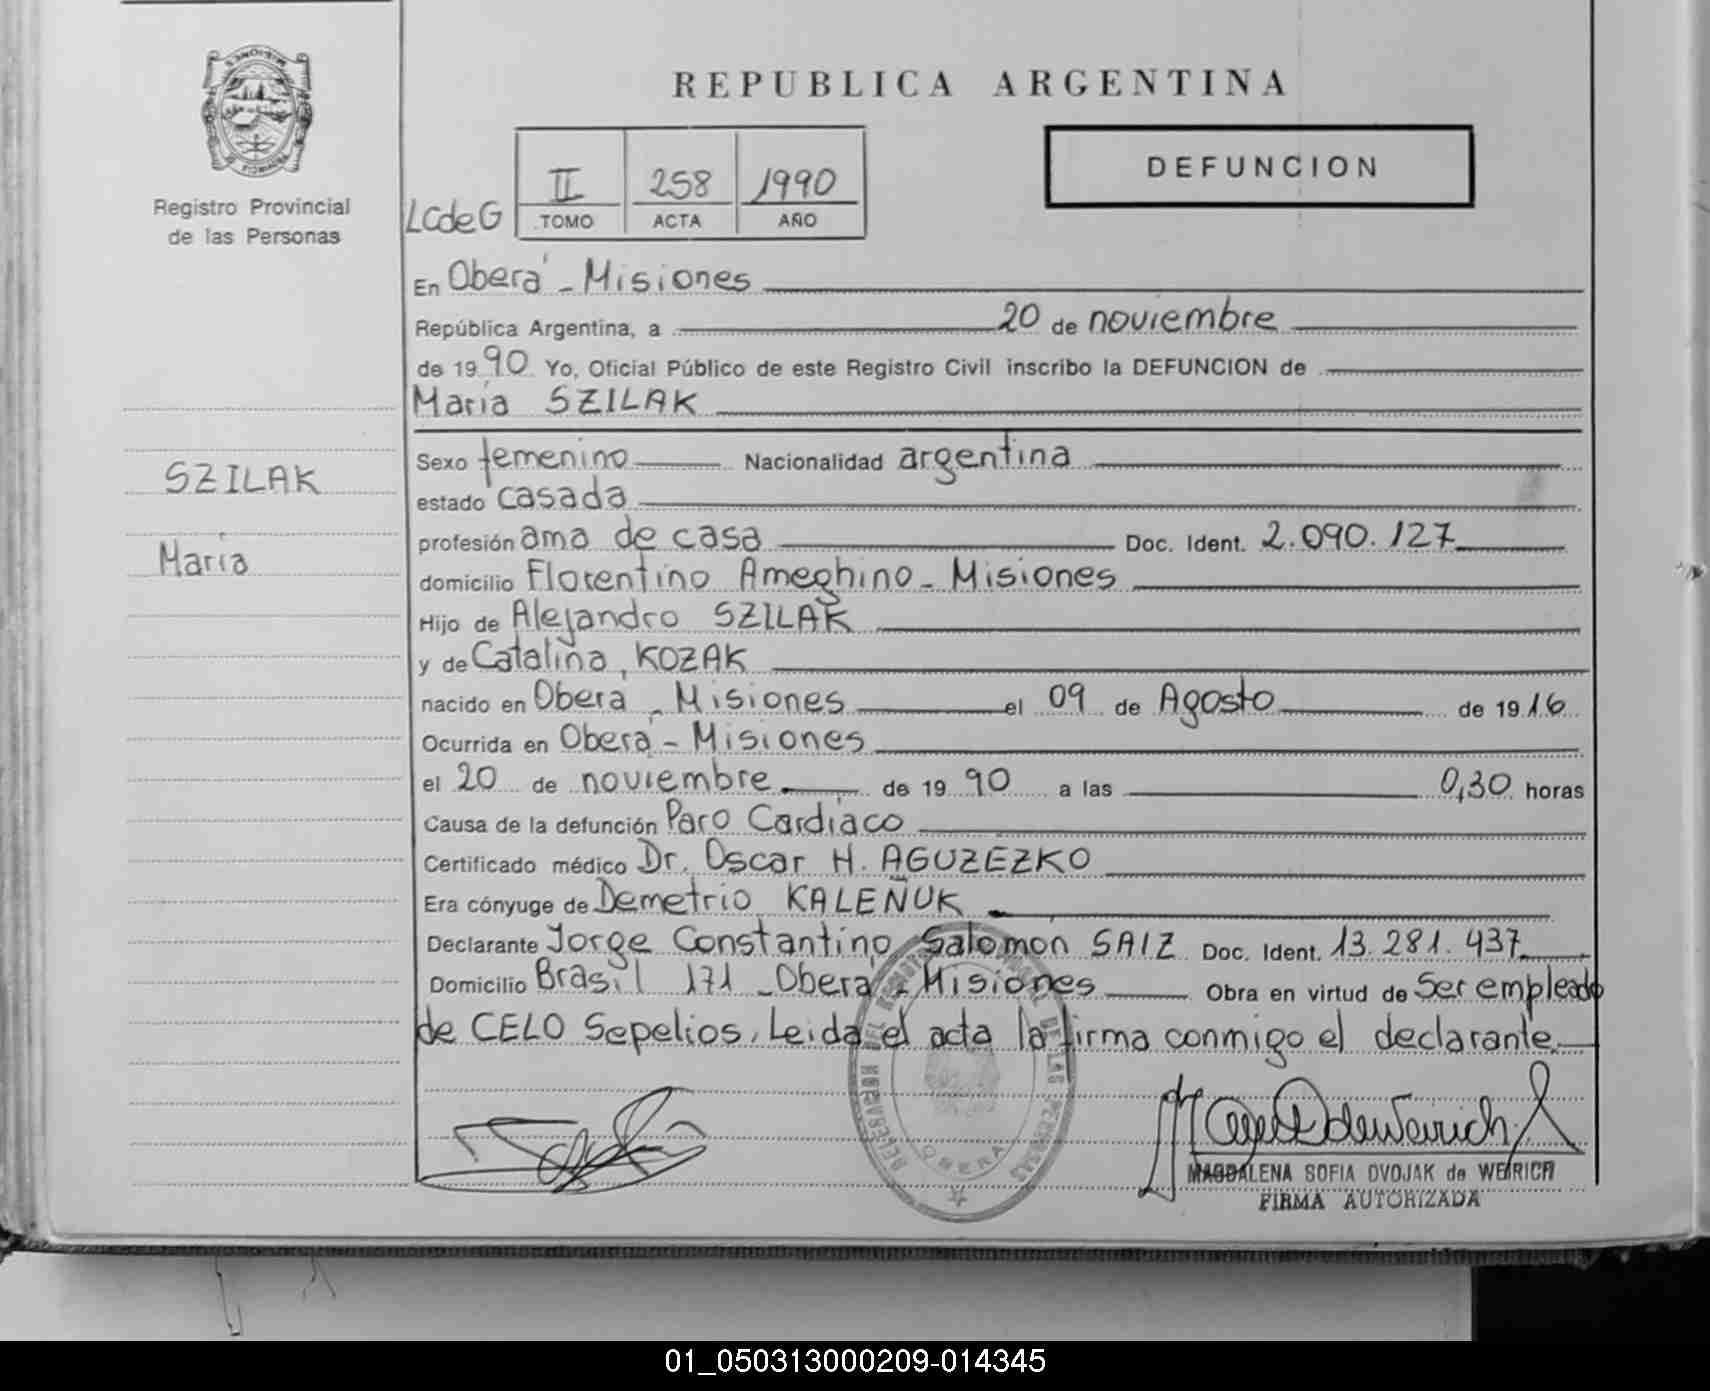 REPUBLICA ARGENTINA
DEFUNCION
Registro Provincial
de las Personas
LCdeG
II 258 1990
TOMO ACTA AÑO
En Oberá - Misiones
República Argentina, a 20 de noviembre
de 1990 Yo, Oficial Público de este Registro Civil inscribo la DEFUNCION de
María SZILAK
SZILAK
María
Sexo femenino Nacionalidad argentina
estado casada
profesión ama de casa Doc. Ident. 2.090.127
domicilio Florentino Ameghino - Misiones
Hijo de Alejandro SZILAK
y de Catalina, KOZAK
nacido en Oberá - Misiones el 09 de Agosto de 1916
Ocurrida en Oberá - Misiones
el 20 de noviembre de 1990 a las 0,30 horas
Causa de la defunción Paro Cardíaco
Certificado médico Dr. Oscar H. AGUZEZKO
Era cónyuge de Demetrio KALEÑUK
Declarante Jorge Constantino Salomon SAIZ Doc. Ident. 13.281.437
Domicilio Brasil 171 - Oberá - Misiones Obra en virtud de Ser empleado
de CELO Sepelios. Leida el acta la firma conmigo el declarante.
OBERA
MAGDALENA SOFIA DVOJAK de WEIRICH
FIRMA AUTORIZADA
01_050313000209-014345